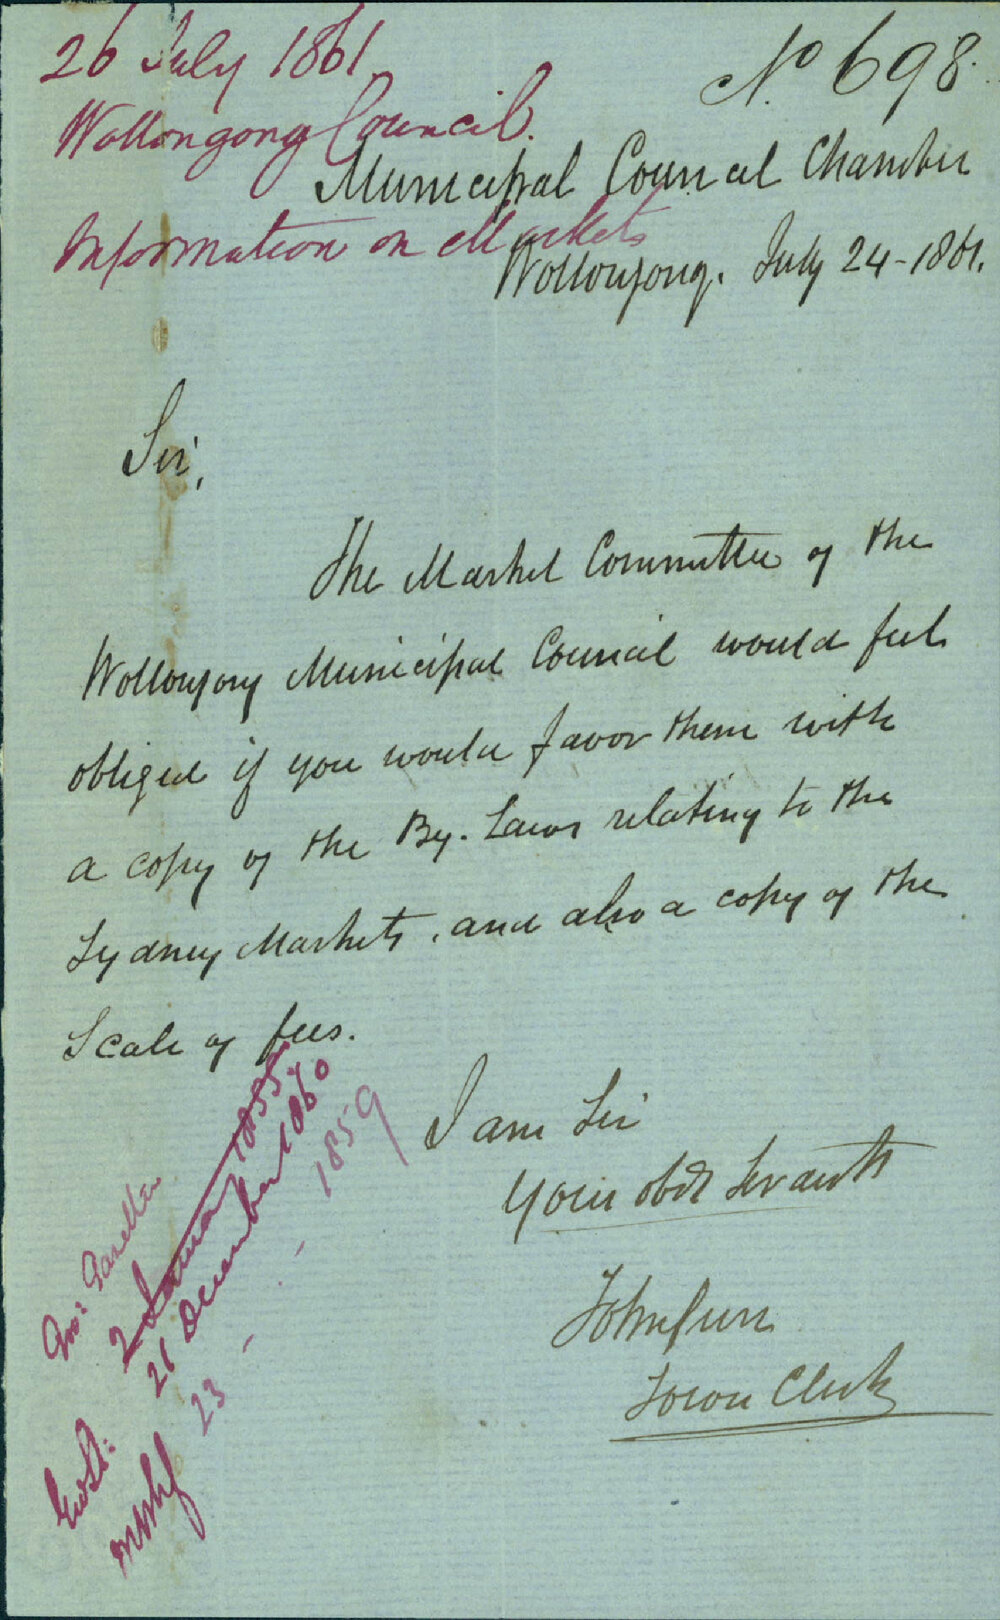 26 July 1861
No 698.
Wollongong Council.
Municipal Council Chamber
Information on Markets
Wollongong. July 24-1861.
Sir,
The Market Committee of the
Wollongong Municipal Council would feel
obliged if you would favor them with
a copy of the By-Laws relating to the
Sydney Markets, and also a copy of the
Scale of fees.
I am Sir
Your obdt Servant
John
Town Clerk
Gov: Gazettes
2 January 1855
21 December 1860
23 - - 1859